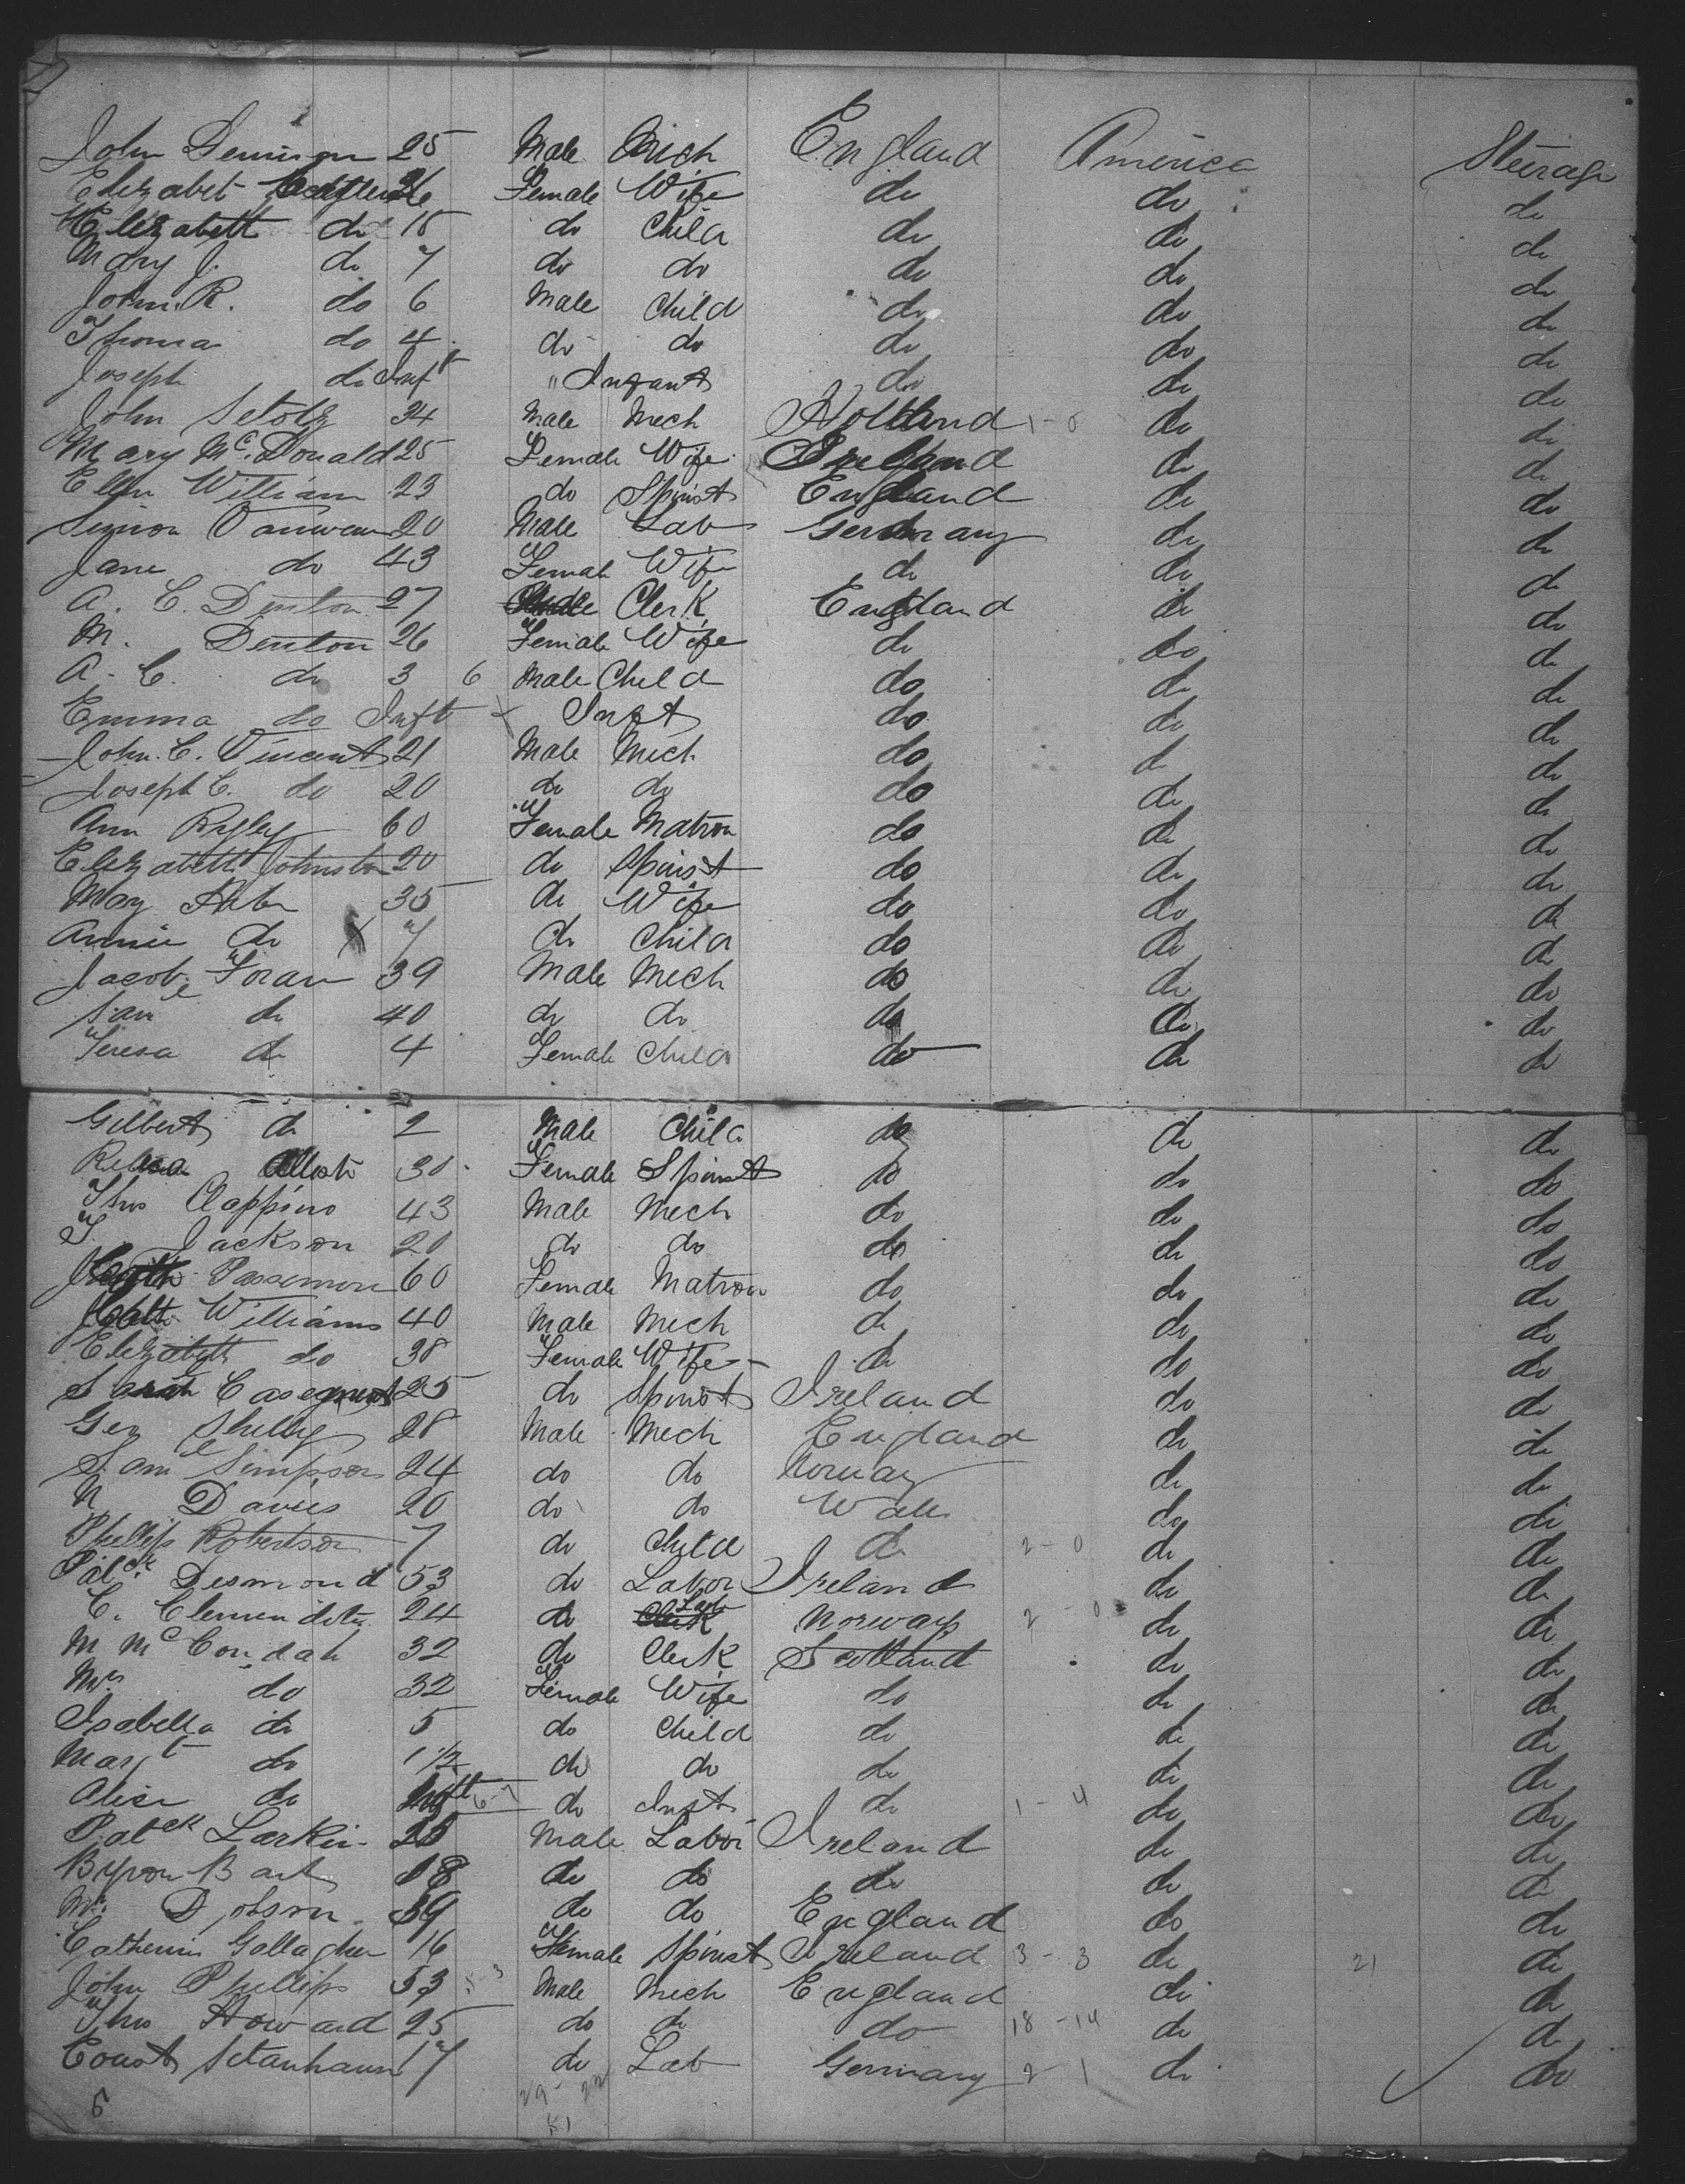 John Dennison 25 Male Mech England America Steerage
Elizabet 26 Female Wife do do do
Elizabeth do 15 do Child do do do
Mary J. do 7 do do do do do
John R. do 6 Male Child do do do
Thoma do 4 do do do do do
Joseph do Inft " Infant do do do
John Stolz 34 Male Mech Holland 1-0 do do
Mary McDonald 25 Female Wife Ireland do do
Ellen William 23 do Spinst England do do
Simon 20 Male Lab Germany do do
Jane do 43 Female Wife do do do
A. C. Denton 27 Male Clerk England do do
M. Denton 26 Female Wife do do do
A. C. do 3 6 Male Child do do do
Emma do Inft x Inft do do do
John C. Vincent 21 Male Mech do do do
Joseph C. do 20 do do do do do
Ann Rigley 60 Female Matron do do do
Elizabeth Johnston 20 do Spinst do do do
Mary 35 do Wife do do do
Annie do x 7 do Child do do do
Jacob Foran 39 Male Mech do do do
Saml do 40 do do do do do
Teresa do 4 Female Child do do do
Gilbert do 2 Male Child do do do
30 Female Spinst do do do
Thos Clappins 43 Male Mech do do do
T. Jackson 20 do do do do do
Passemore 60 Female Matron do do do
Williams 40 Male Mech do do do
Elizabeth do 38 Female Wife do do do
Sarah 25 do Spinst Ireland do do
Geo Shelley 28 Male Mech England do do
Saml Simpson 24 do do Norway do do
N Davies 20 do do Wales do do
Phillip Robertson 7 do Child do 2-0 do do
Patck Desmond 53 do Labor Ireland do do
C. 24 do Lab Norway 2-0 do do
M McCondah 32 do Clerk Scotland do do
Mrs do 32 Female Wife do do do
Isabella do 5 do Child do do do
Margt do 1 1/2 do do do do do
Alice do Inft 6-7 do Inft do 1-4 do do
Patck Larkin 25 Male Labor Ireland do do
Byron Bart 18 do do do do do
Wm Dobson 39 do do England do do
Catherine Gallagher 16 Female Spinst Ireland 3-3 do 21 do
John Phillips 53 5-3 Male Mech England do do
Thos Howard 25 do do do 18-14 do do
17 do Lab Germany 2-1 do do
29 22
5 51